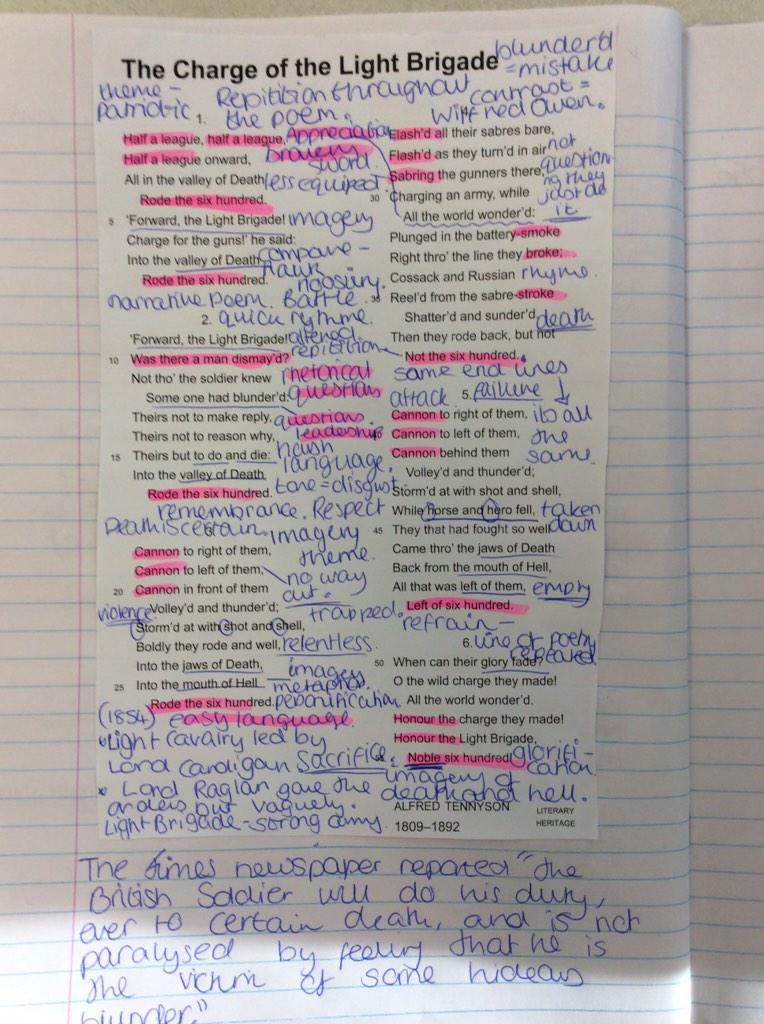 The Charge of the Light Brigade
blunder'd
= mistake
theme -
Parriotic
Repitition throughout
the poem.
contrast =
Wilfred Owen.
1.
Half a league, half a league,
Appreciation
Half a league onward,
bravery
sword.
All in the valley of Death
less equiped
Rode the six hundred.
5 'Forward, the Light Brigade!
imagery
Charge for the guns!' he said:
Into the valley of Death
compare -
Rode the six hundred.
narrative poem. Battle.
2. quick rythme.
'Forward, the Light Brigade!'
altered
repitition
10 Was there a man dismay'd?
rhetorical
Not tho' the soldier knew
questions
Some one had blunder'd:
Theirs not to make reply,
questions.
Theirs not to reason why,
leadership
15 Theirs but to do and die:
harsh
language.
Into the valley of Death
Rode the six hundred.
tone = disgust
remembrance. Respect
Death is certain.
imagery
theme.
Cannon to right of them,
Cannon to left of them,
no way
out.
20 Cannon in front of them
violence
Volley'd and thunder'd;
trapped.
Storm'd at with shot and shell,
Boldly they rode and well,
relentless.
Into the jaws of Death,
imagery
25 Into the mouth of Hell
metaphor.
Rode the six hundred.
personification
(1854) easy language.
Light cavalry led by
Lord Cardigan
Sacrifice.
* Lord Raglan gave the
orders but vaguely.
Light Brigade - strong army.
imagery of
death and hell.
Flash'd all their sabres bare,
Flash'd as they turn'd in air
not
questioni
ng they
just do
it
Sabring the gunners there,
30 Charging an army, while
All the world wonder'd:
Plunged in the battery-smoke
Right thro' the line they broke;
Cossack and Russian
rhyme.
35 Reel'd from the sabre-stroke
Shatter'd and sunder'd.
death
Then they rode back, but not
Not the six hundred.
same end lines
attack
5. failure
Cannon to right of them,
its all
the
same.
40 Cannon to left of them,
Cannon behind them
Volley'd and thunder'd;
Storm'd at with shot and shell,
While horse and hero fell,
taken
down
45 They that had fought so well
Came thro' the jaws of Death
Back from the mouth of Hell,
All that was left of them,
empty
Left of six hundred.
refrain -
line of poem
repeated
6.
50 When can their glory fade?
O the wild charge they made!
All the world wonder'd.
Honour the charge they made!
Honour the Light Brigade,
Noble six hundred!
glorifi-
cation.
ALFRED TENNYSON
1809–1892
LITERARY
HERITAGE
The times newspaper reported "the
British Soldier will do his duty,
ever to certain death, and is not
paralysed by feeling that he is
the victim of some hideous
blunder."